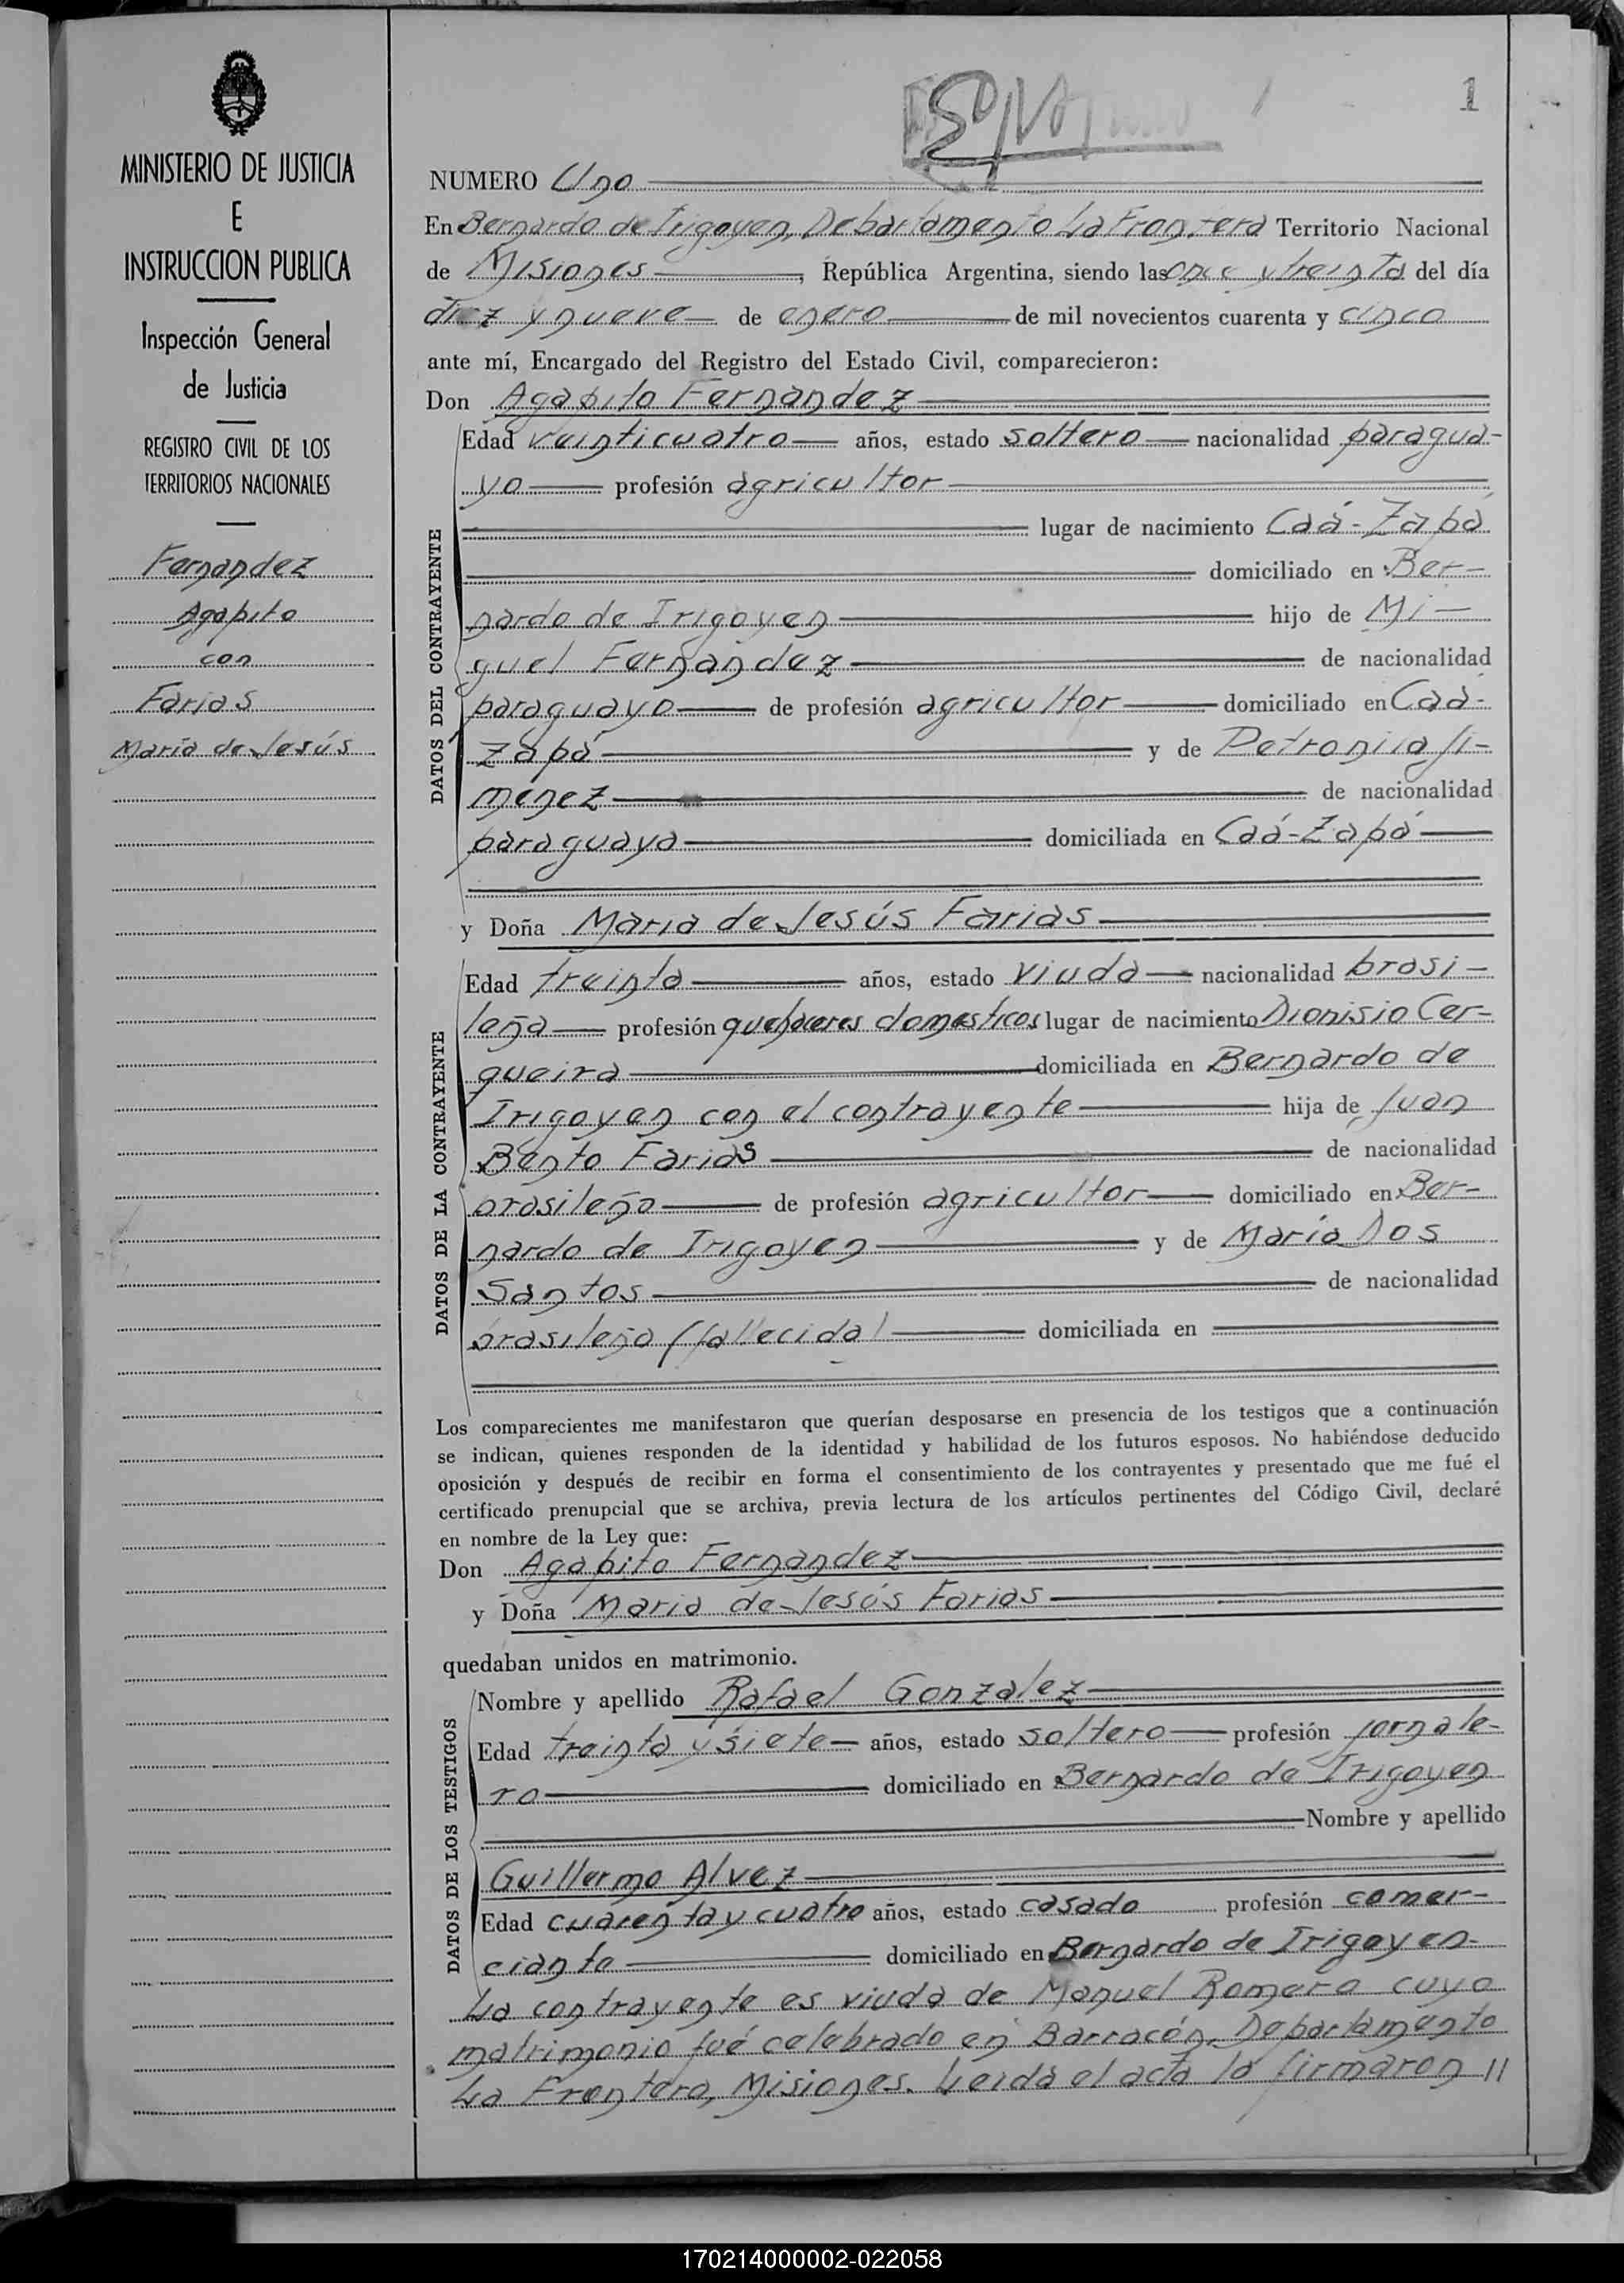 MINISTERIO DE JUSTICIA
E
INSTRUCCION PUBLICA
Inspección General
de Justicia
REGISTRO CIVIL DE LOS
TERRITORIOS NACIONALES
Fernandez
Agapito
con
Farias
María de Jesús
1
NUMERO Uno
En Bernardo de Irigoyen, Departamento La Frontera Territorio Nacional
de Misiones, República Argentina, siendo las once y treinta del día
diez y nueve de enero de mil novecientos cuarenta y cinco
ante mí, Encargado del Registro del Estado Civil, comparecieron:
Don Agapito Fernandez
DATOS DEL CONTRAYENTE
Edad veinticuatro años, estado soltero nacionalidad paragua-
yo profesión agricultor
lugar de nacimiento Caá-Zapá
domiciliado en Ber-
nardo de Irigoyen hijo de Mi-
guel Fernandez de nacionalidad
paraguayo de profesión agricultor domiciliado en Caá-
Zápá y de Petronila Ji-
menez de nacionalidad
paraguaya domiciliada en Caá-Zapá
y Doña Maria de Jesús Farias
DATOS DE LA CONTRAYENTE
Edad treinta años, estado viuda nacionalidad brasi-
leña profesión quehaceres domesticos lugar de nacimiento Dionisio Cer-
queira domiciliada en Bernardo de
Irigoyen con el contrayente hija de Juan
Bento Farias de nacionalidad
brasileño de profesión agricultor domiciliado en Ber-
nardo de Irigoyen y de María Dos
Santos de nacionalidad
brasileña (fallecida) domiciliada en
Los comparecientes me manifestaron que querían desposarse en presencia de los testigos que a continuación
se indican, quienes responden de la identidad y habilidad de los futuros esposos. No habiéndose deducido
oposición y después de recibir en forma el consentimiento de los contrayentes y presentado que me fué el
certificado prenupcial que se archiva, previa lectura de los artículos pertinentes del Código Civil, declaré
en nombre de la Ley que:
Don Agapito Fernandez
y Doña Maria de Jesús Farias
quedaban unidos en matrimonio.
DATOS DE LOS TESTIGOS
Nombre y apellido Rafael Gonzalez
Edad treinta y siete años, estado soltero profesión jornale-
ro domiciliado en Bernardo de Irigoyen
Nombre y apellido
Guillermo Alvez
Edad cuarenta y cuatro años, estado casado profesión comer-
ciante domiciliado en Bernardo de Irigoyen-
La contrayente es viuda de Manuel Romero cuyo
matrimonio fué celebrado en Barracón, Departamento
La Frontera, Misiones. Leida el acta la firmaron //
170214000002-022058